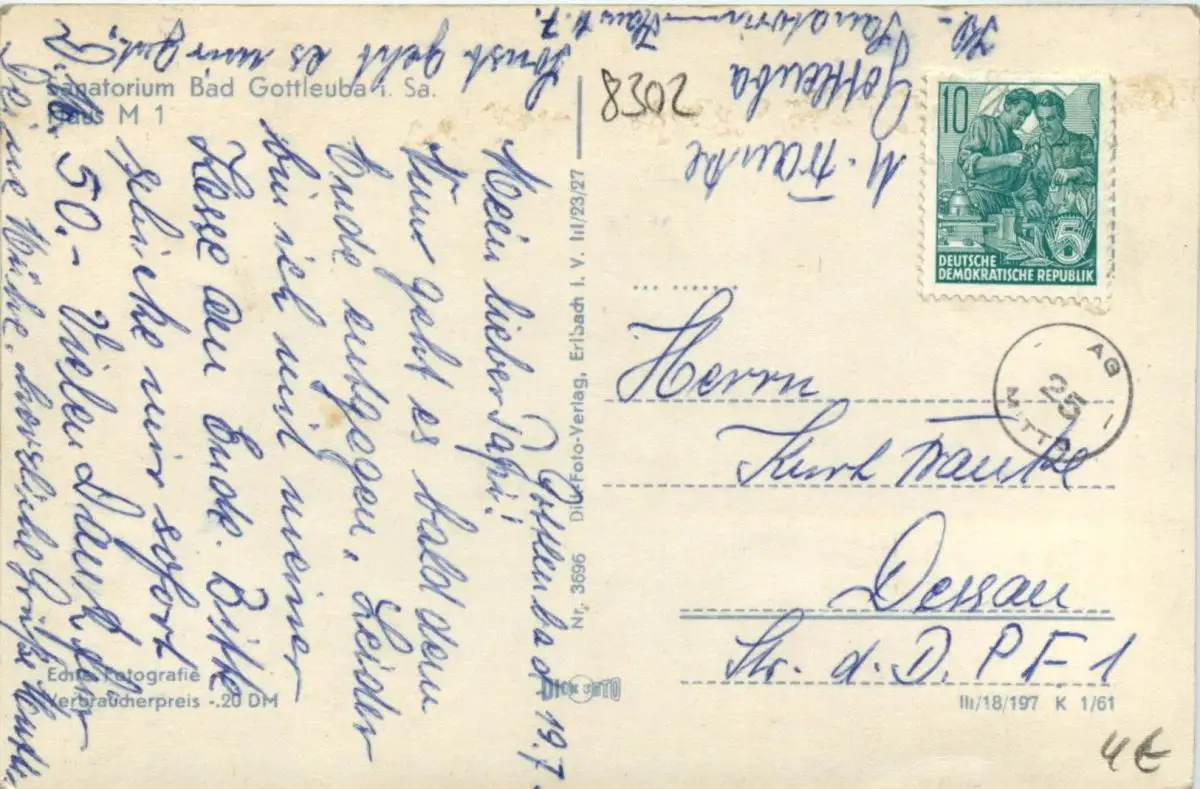 Sanatorium Bad Gottleuba i. Sa.
Haus M 1
Gottleuba d 19.7.
Mein lieber Papi!
Nun geht es bald dem
Ende entgegen. Leider
bin ich mit meiner
Kasse am Ende. Bitte
schicke mir sofort
D.M. 50.- Vielen Dank für
Deine Mühe, herzliche Grüße
Sonst geht es mir gut.
Echte Fotografie
Verbraucherpreis -.20 DM
Nr. 3696 Dick Foto-Verlag, Erlbach i. V. III/23/27
DICK FOTO
8302
M. Franke
Gottleuba
Sanatorium Haus
10
5
DEUTSCHE
DEMOKRATISCHE REPUBLIK
AG
25
MITT
Herrn
Kurt Franke
Dessau
Str. d. D. P F 1
III/18/197 K 1/61
4€